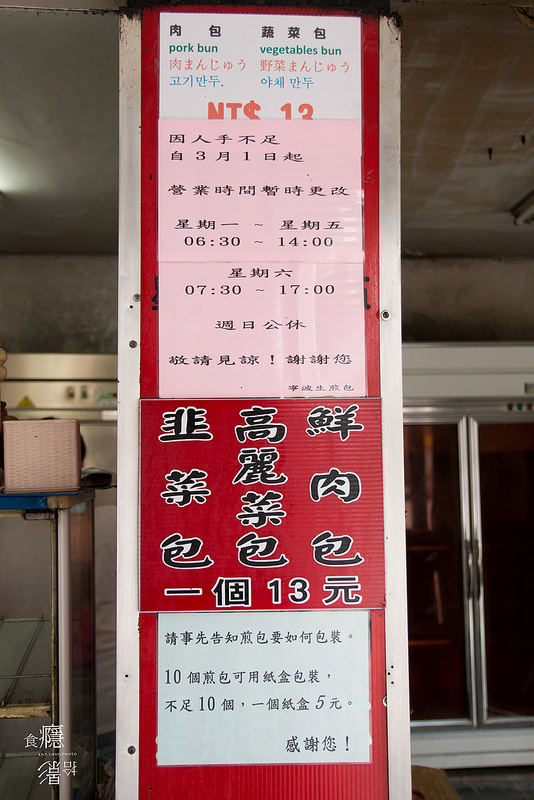 肉包 蔬菜包
pork bun vegetables bun
肉まんじゅう 野菜まんじゅう
고기만두. 야채 만두
NT$ 13
因人手不足
自3月1日起
營業時間暫時更改
星期一 ~ 星期五
06:30 ~ 14:00
星期六
07:30 ~ 17:00
週日公休
敬請見諒！謝謝您
寧波生煎包
鮮肉包
高麗菜包
韭菜包
一個13元
請事先告知煎包要如何包裝。
10個煎包可用紙盒包裝，
不足10個，一個紙盒5元。
感謝您！
食癮
EAT.LOVE.PHOTO
拾影